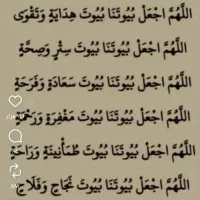 اللَّهُمَّ اجْعَلْ بُيُوتَنَا بُيُوتَ هِدَايَةٍ وَتَقْوَى
اللَّهُمَّ اجْعَلْ بُيُوتَنَا بُيُوتَ سِتْرٍ وَصِحَّةٍ
اللَّهُمَّ اجْعَلْ بُيُوتَنَا بُيُوتَ سَعَادَةٍ وَفَرَحَةٍ
اللَّهُمَّ اجْعَلْ بُيُوتَنَا بُيُوتَ مَغْفِرَةٍ وَرَحْمَةٍ
اللَّهُمَّ اجْعَلْ بُيُوتَنَا بُيُوتَ طُمَأْنِينَةٍ وَرَاحَةٍ
اللَّهُمَّ اجْعَلْ بُيُوتَنَا بُيُوتَ نَجَاحٍ وَفَلَاحٍ